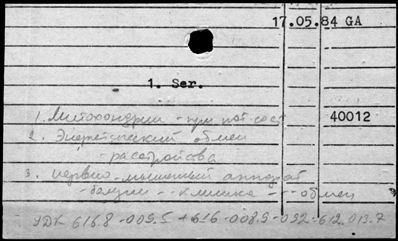 17.05.84 GA
1. Ser.
1. Митохондрии - при пат. сост. 40012
2. Энергетический обмен
- расстройства
3. нервно-мышечный аппарат
- болезни - клиника - - обмен
УДК 616.8-009.5+616-008.9-092-612.013.7